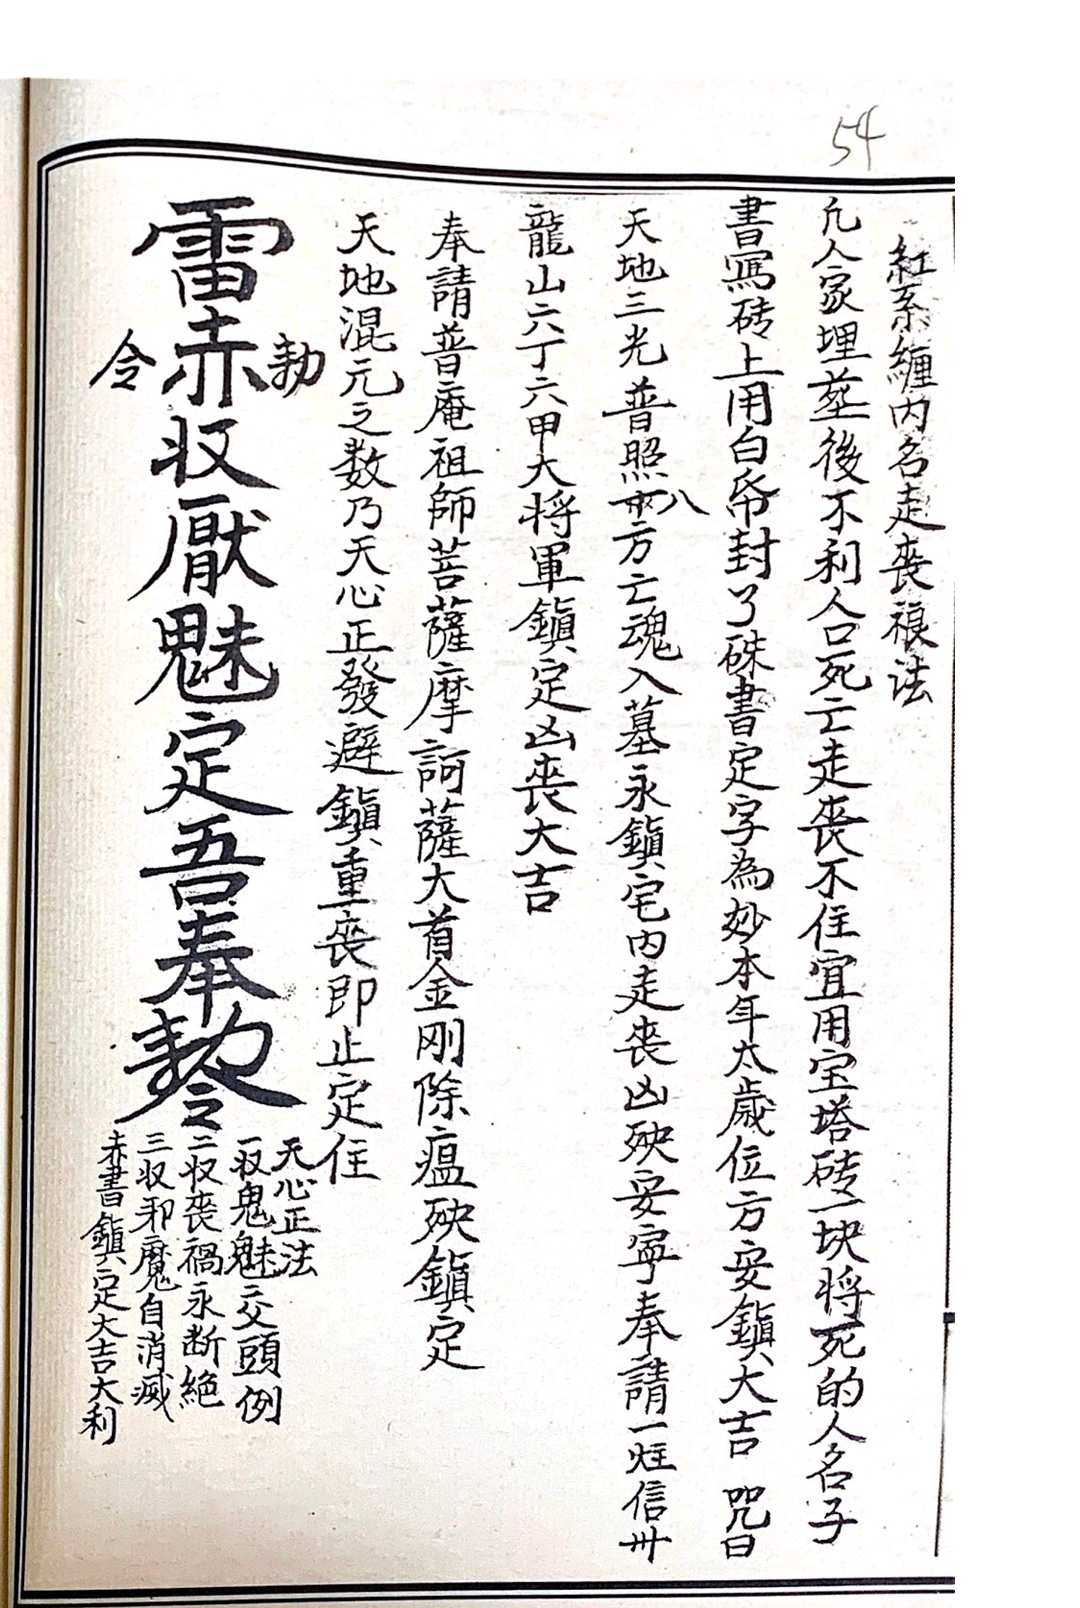 54
紅系纏内名走喪
法
凡人家埋塟後不利人口死亡走喪不住宜用宝塔砖一块将死的人名子
書寫砖上用白帋封了硃書定字為妙本年太歲位方安鎮大吉 咒曰
天地三光普照八方亡魂入墓永鎮宅内走喪凶殃安寧奉請一炷信卅
龍山六丁六甲大将軍鎮定凶喪大吉
奉請普庵祖師菩薩摩訶薩大首金剛除瘟殃鎮定
天地混元之数乃天心正發避鎮重喪即止定住
勅
雷赤収厭魅定吾奉
令
天心正法
一収鬼魅交頭例
二収喪禍永断絶
三収邪魔自消滅
赤書鎮定大吉大利